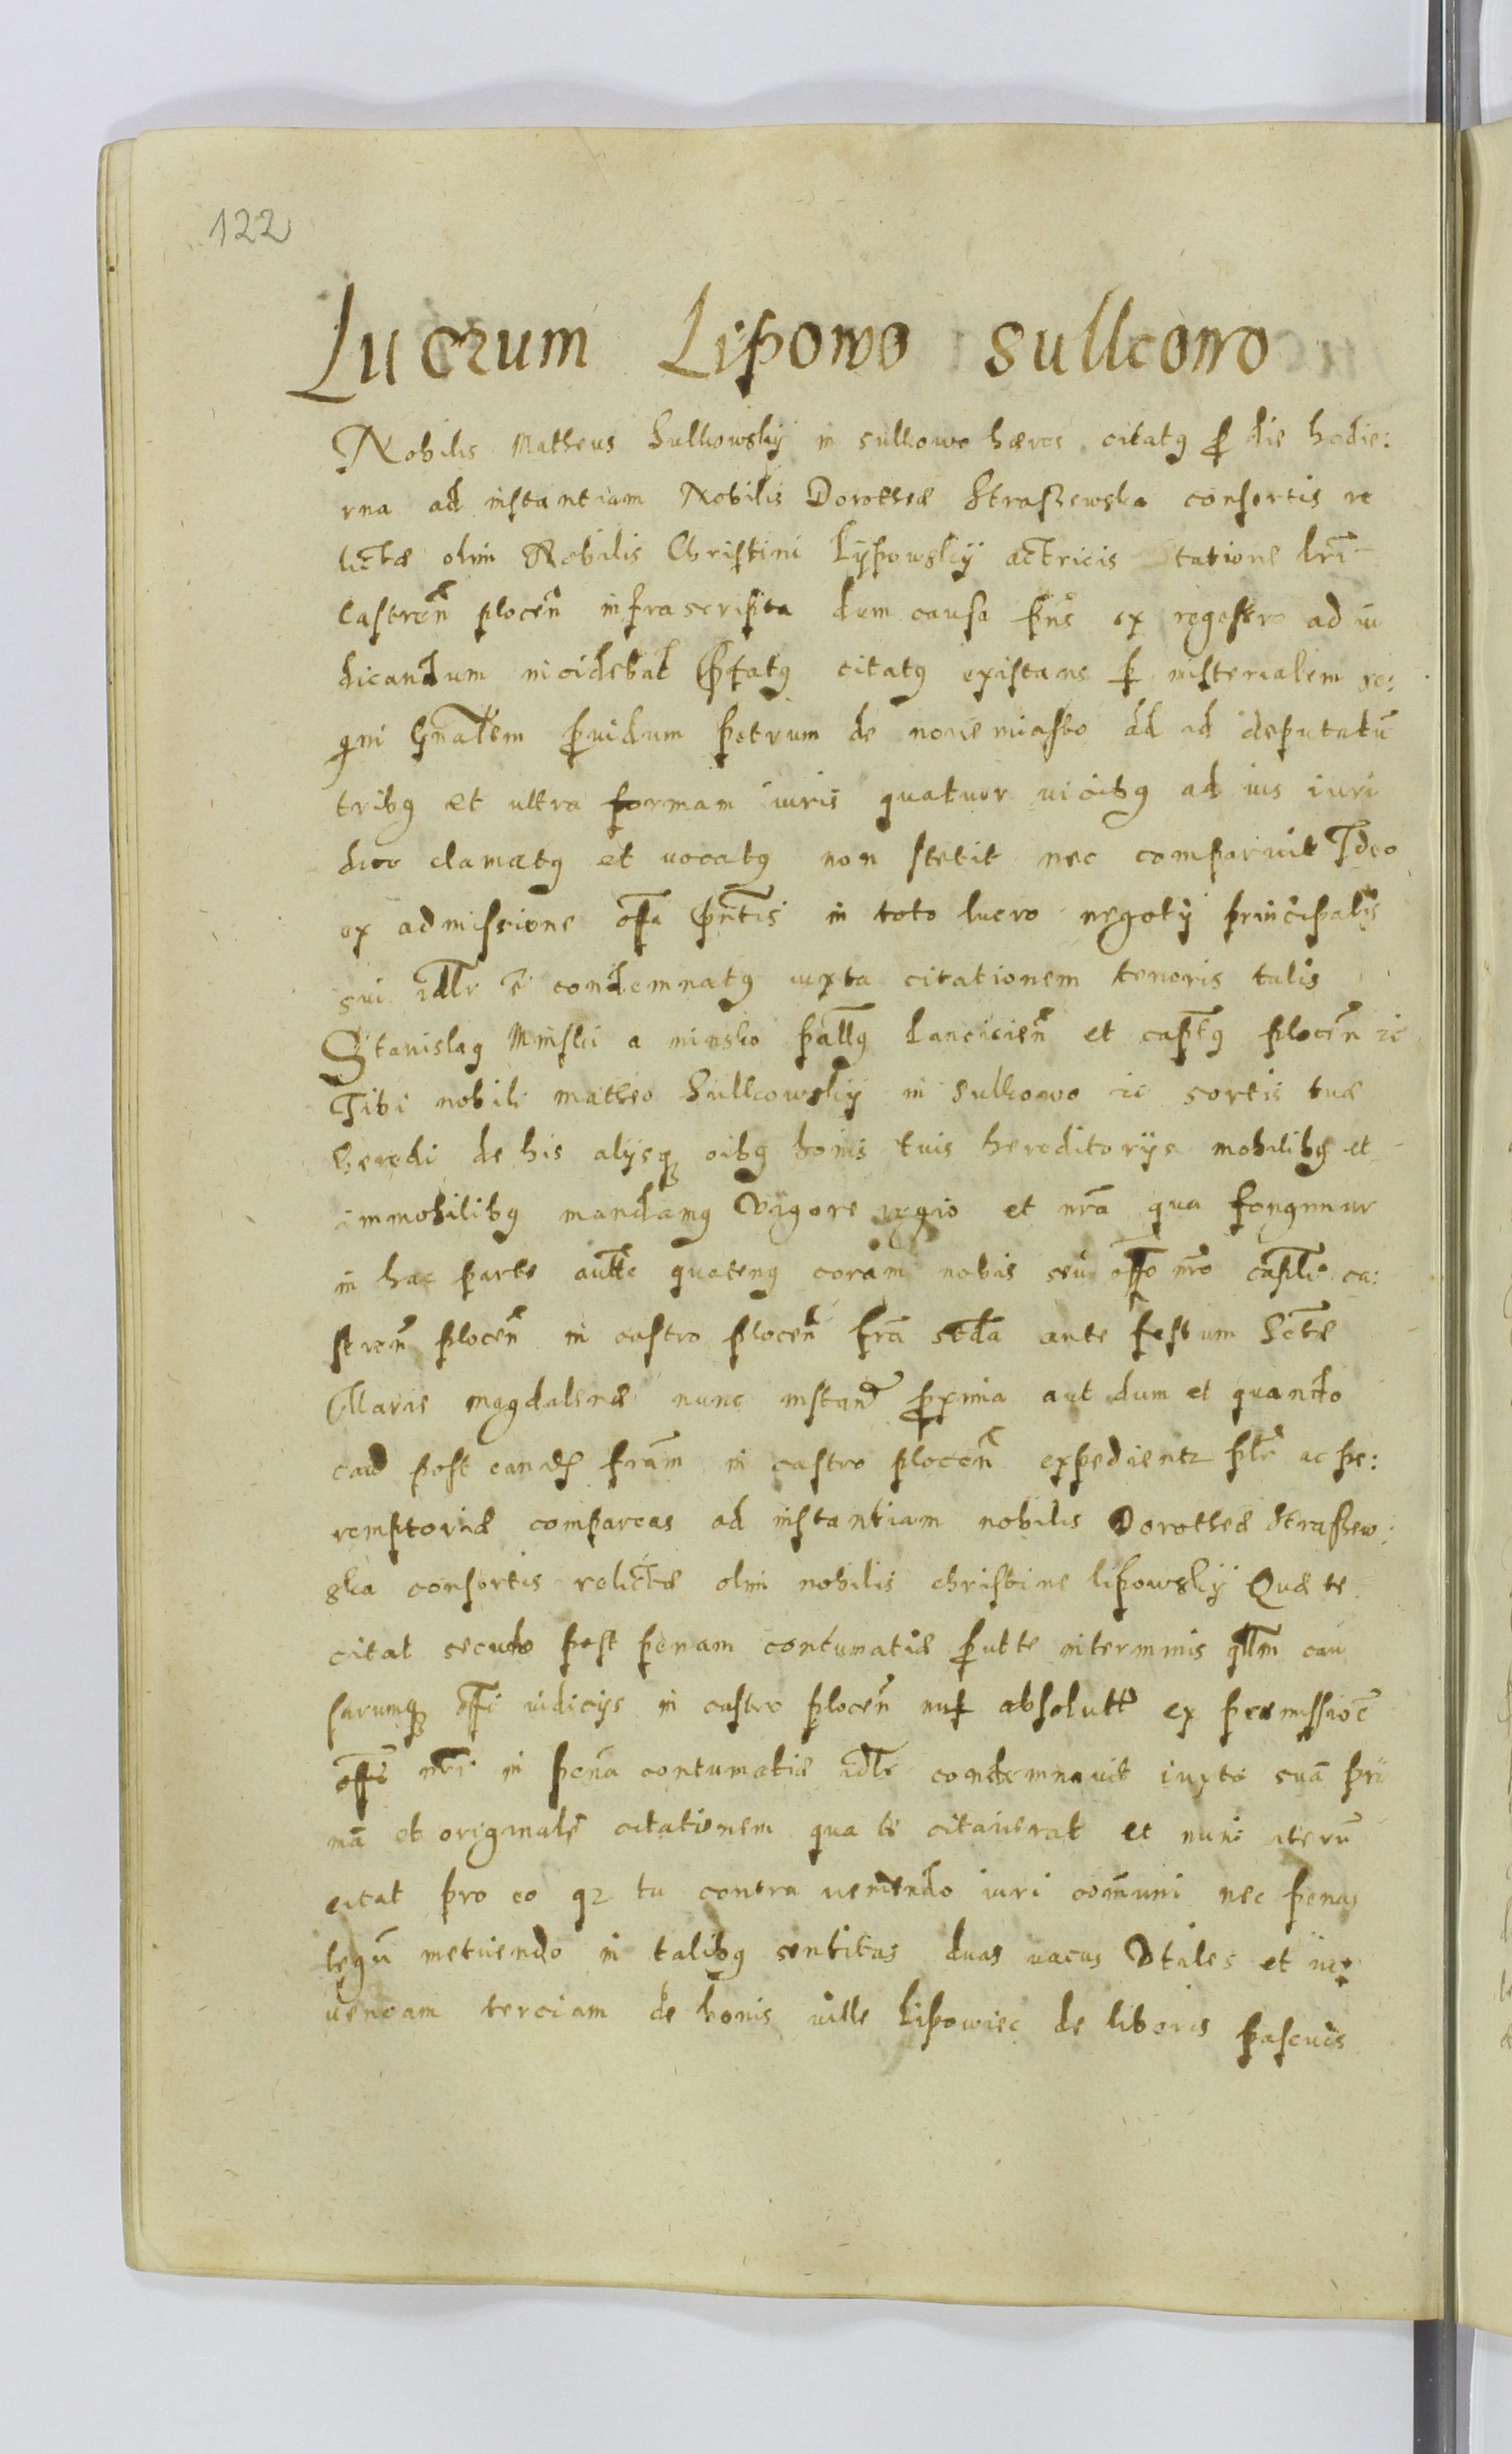 122
Lucrum Lipowo Sullcowo
Nobilis Matheus Sulkowskÿ in sulkowo hæres citatꝯ ꝓ die hodie:
rna ad instantiam Nobilis Dorotheæ Straszewska consortis re
lictæ olim Nobilis Christini Lÿpowskÿ actricis Citatione
Castreñ plocen̄ infrascripta dum causa pn̄s ex regestro ad iu
dicandum incidebat p̄fatꝯ citatꝯ existens ꝑ misterialem re:
gni gn̄alem ꝓvidum petrum de nove miasto ad id deputatū
tribꝯ et ultra formam iuris quatuor vicibꝯ ad ius iuri
dice clamatꝯ et vocatꝯ non stetit nec comparuit Ideo
ex admissione off̄i pn̄tis in toto lucro negotÿ principalis
sui idlr ē condemnatꝯ iuxta citationem tenoris talis
Stanislaꝯ Minski a minsko pall̄ꝯ Lanciciēn et capt̄ꝯ plocēn ꝛc
Tibi nobili matheo Sullcowskÿ in Sulkowo ꝛc sortis tuæ
heredi de his alÿsqꝫ oibꝯ bonis tuis hereditarÿs mobilibꝯ et
immobilibꝯ mandamꝯ Vigore regio et nr̄a qua fongimur
in hac parte autt̄e quatenꝯ coram nobis seu off̄o nr̄o capt̄li ca:
stren̄ plocen̄ in castro plocen̄ fr̄a scd̄a ante festum Sctæ
Marie magdalenæ nunc instan̄ ꝓxima aut dum et quando
post eandꝫ fr̄am in castro plocen̄ expedientꝛ plr̄ ac pe:
remptoriæ compareas ad instantiam nobilis Dorotheæ Straszew:
ska consortis relictæ olim nobilis christine lipowskÿ Quæ te
citat secudo post penam contumatiæ ꝓut te in terminis qll̄m cau
sarumqꝫ off̄i iudicÿs in castro plocen̄ absolutt̄ ex præmissioē
off̄i nr̄i in penā contumatiæ idlr condemnavit iuxta suā pri
mā et originalē citationem qua te citaverat et nunc iterū
citat pro eo qꝛ tu contra veniendo iuri com̄uni nec penas
legū metuendo in talibꝯ sentitas duas vacas Utiles et iu:
vencam terciam de bonis ville Lipowiec de liberis pascuis